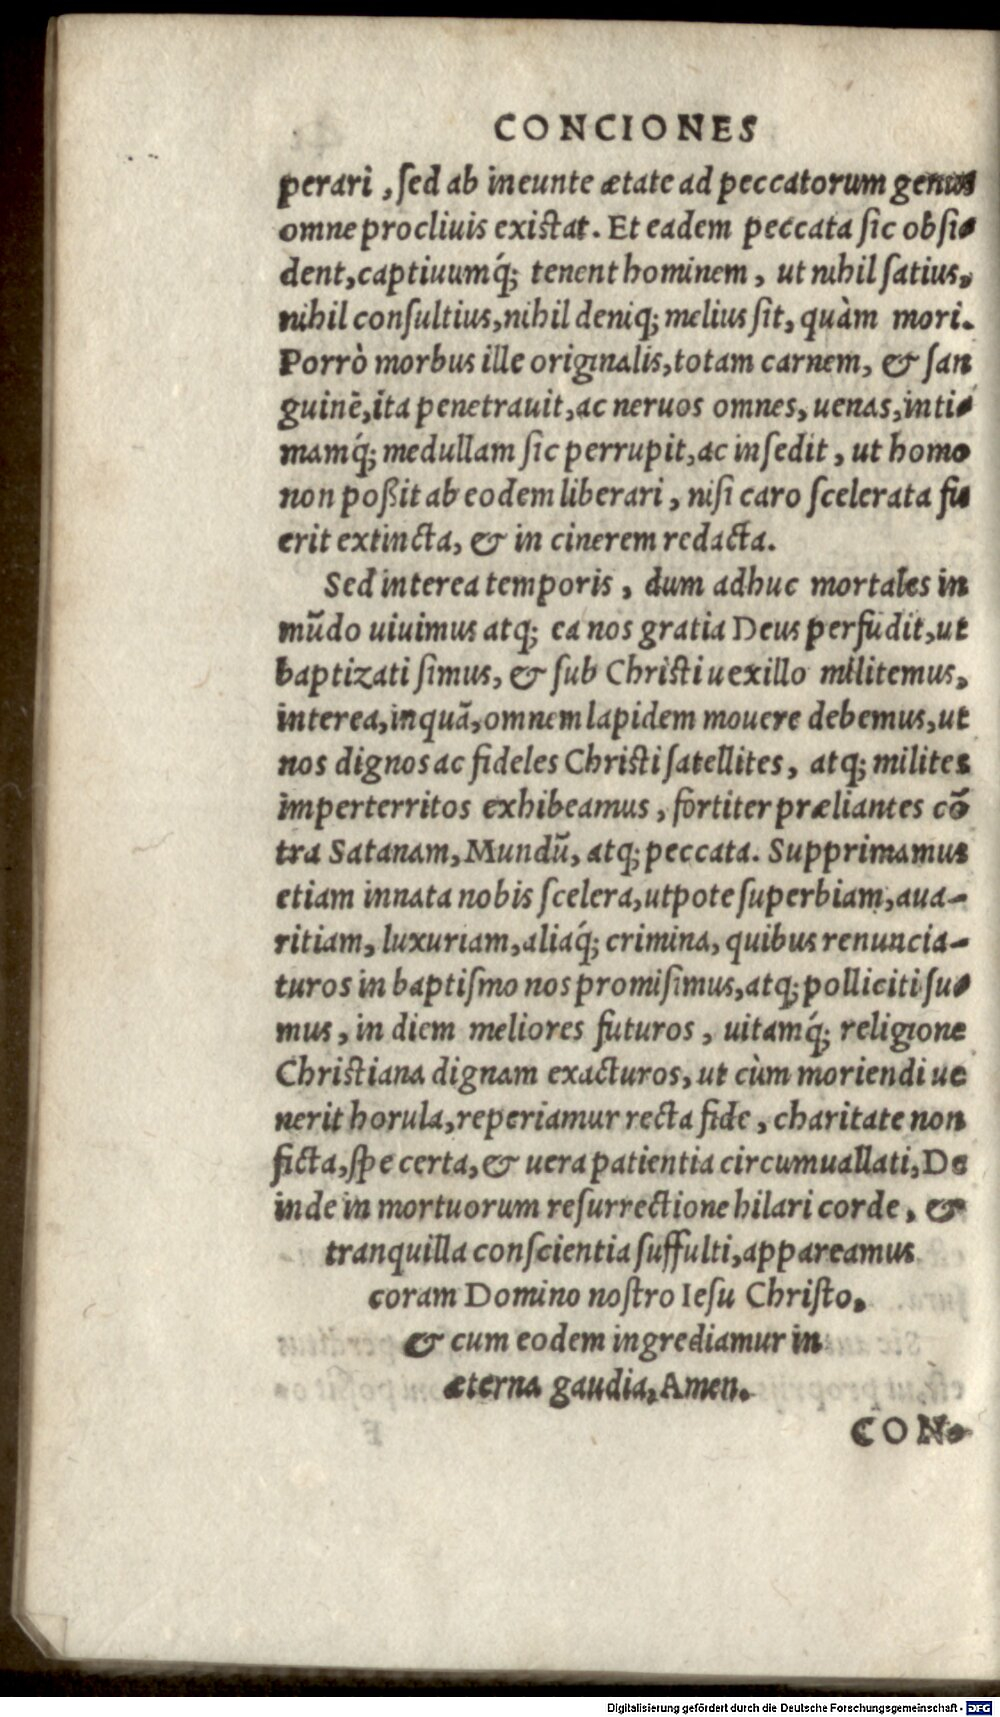 CONCIONES
perari, sed ab ineunte ætate ad peccatorum genus
omne procliuis existat. Et eadem peccata sic obsi-
dent, captiuumq́; tenent hominem, ut nihil satius,
nihil consultius, nihil deniq; melius sit, quàm mori.
Porrò morbus ille originalis, totam carnem, & san
guinē, ita penetrauit, ac neruos omnes, uenas, inti-
mamq́; medullam sic perrupit, ac insedit, ut homo
non poßit ab eodem liberari, nisi caro scelerata fu
erit extincta, & in cinerem redacta.
Sed interea temporis, dum adhuc mortales in
mūdo uiuimus atq; ea nos gratia Deus perfudit, ut
baptizati simus, & sub Christi uexillo militemus,
interea, inquā, omnem lapidem mouere debemus, ut
nos dignos ac fideles Christi satellites, atq; milites
imperterritos exhibeamus, fortiter præliantes cō
tra Satanam, Mundū, atq; peccata. Supprimamus
etiam innata nobis scelera, utpote superbiam, aua-
ritiam, luxuriam, aliaq́; crimina, quibus renuncia-
turos in baptismo nos promisimus, atq; polliciti su-
mus, in diem meliores futuros, uitamq́; religione
Christiana dignam exacturos, ut cùm moriendi ue
nerit horula, reperiamur recta fide, charitate non
ficta, spe certa, & uera patientia circumuallati, De
inde in mortuorum resurrectione hilari corde, &
tranquilla conscientia suffulti, appareamus
coram Domino nostro Iesu Christo,
& cum eodem ingrediamur in
æterna gaudia, Amen.
CON-
Digitalisierung gefördert durch die Deutsche Forschungsgemeinschaft - DFG